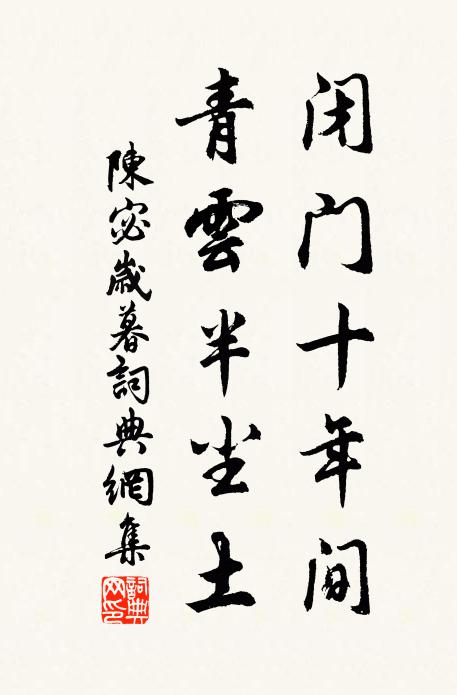 闭门十年间
青雲半尘土
陳宓歲暮詞典網集
詞典网印